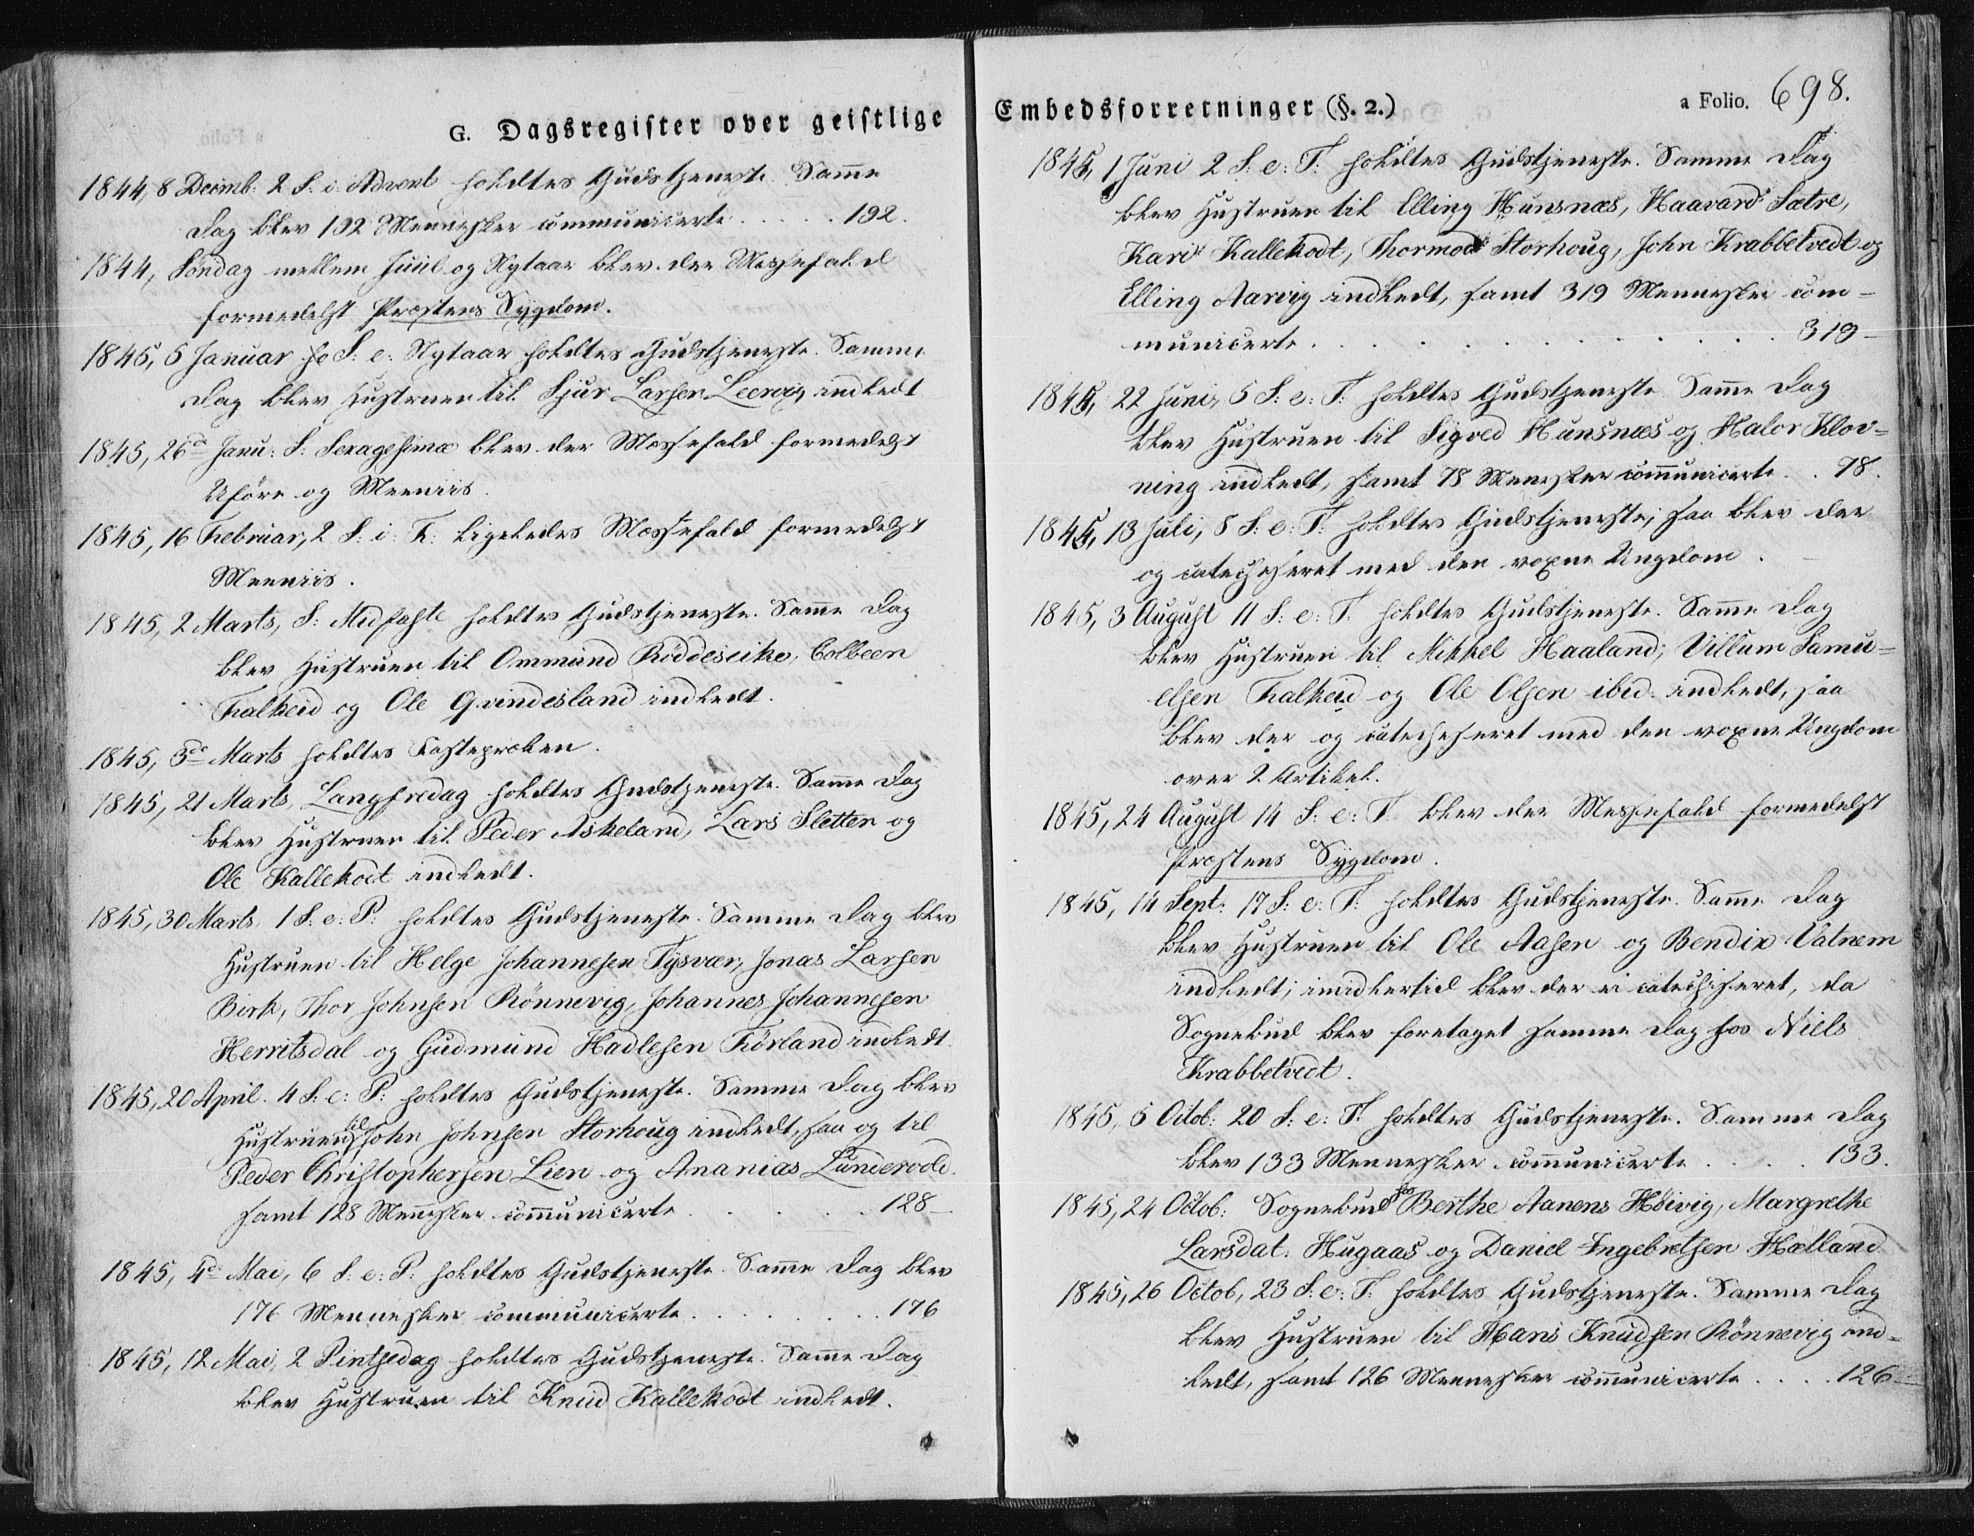 G. Dagsregister over geistlige
1844, 8 Decemb: 2 S: i Advent holdtes Gudstjeneste. Samme
Dag blev 192 Mennesker communicerte . . . . . 192.
1844, Söndag mellem Juul og Nytaar blev der Messefald
formedelst Præstens Sygdom.
1845, 5 Januar S: e: Nytaar holdtes Gudstjeneste. Samme
Dag blev Hustruen til Sjur Larsen Leervig indledt
1845, 26de Janu: S: Sexagesimæ blev der Messefald formedelst
Uföre og Meeniis.
1845, 16 Februar, 2 S: i F: ligeledes Messefald formedelst
Meeniis.
1845, 2 Marts, S: Midfaste holdtes Gudstjeneste. Samme Dag
blev Hustruen til Ommund Röddeseike, Colbeen
Falkeid og Ole Gvindesland indledt.
1845, 3de Marts holdtes Fasteprøken.
1845, 21 Marts, Langfredag holdtes Gudstjeneste. Samme Dag
blev Hustruen til Peder Askeland, Lars Sletten og
Ole Kallekodt indledt.
1845, 30 Marts 1 S: e: P: holdtes Gudstjeneste. Samme Dag blev
Hustruen til Helge Johannesen Tysvær, Jonas Larsen
Birk, Thor Johnsen Rönnevig, Johannes Johannesen
Herritsdal og Gudmund Hadlesen Förland indledt.
1845, 20 April. 4 S: e: P: holdtes Gudstjeneste. Samme Dag blev
Hustruen til John Johnsen Storhoug indledt, saa og til
Peder Christophersen Lien og Ananias Lundervold.
samt 128 Mennesker communicerte . . . . . 128
1845, 4de Mai, 6 S: e: P: holdtes Gudstjeneste. Samme Dag blev
176 Mennesker communicerte . . . . . . . 176
1845, 12 Mai, 2 Pintsedag holdtes Gudstjeneste. Samme Dag
blev Hustruen til Knud Kallekodt indledt.
Embedsforretninger (§. 2.)
a Folio. 698.
1845, 1 Juni 2 S: e: T: holdtes Gudstjeneste. Samme Dag
blev Hustruen til Elling Hunsnæs, Haavard Sætre,
Kari Kallekodt, Thormod Storhoug, John Krabbetvedt og
Elling Aarvig indledt, samt 319 Mennesker com-
municerte . . . . . . . . . . 319
1845, 22 Juni, 5 S: e: T: holdtes Gudstjeneste Samme Dag
blev Hustruen til Sigved Hunsnæs og Halvor Klov-
ning indledt, samt 78 Mennesker communicerte . . 78.
1845, 13 Juli, 8 S: e: T: holdtes Gudstjeneste; saa blev der
og catechiseret med den voxne Ungdom.
1845, 3 August 11 S: e: T: holdtes Gudstjeneste. Samme Dag
blev Hustruen til Mikkel Haaland, Villum Samu-
elsen Falkeid og Ole Olsen ibid. indledt, saa
blev der og catechiseret med den voxne Ungdom
over 2 Artikel.
1845, 24 August 14 S: e: T: blev der Messefald formedelst
Præstens Sygdom.
1845, 14 Sept: 17 S: e: T: holdtes Gudstjeneste. Samme Dag
blev Hustruen til Ole Aasen og Bendix Vatnem
indledt; imidlertid blev der ei catechiseret, da
Sognebud blev foretaget samme Dag hos Niels
Krabbetvedt.
1845, 5 Octob: 20 S: e: T: holdtes Gudstjeneste. Samme Dag
blev 133 Mennesker communicerte . . . . 133.
1845, 24 Octob: Sognebud hos Berthe Aanens Höivig, Margrethe
Larsdat: Hugaas og Daniel Ingebretsen Hætland
1845, 26 Octob, 23 S: e: T: holdtes Gudstjeneste. Samme Dag
blev Hustruen til Hans Knudsen Rönnevig ind-
ledt, samt 126 Mennesker communicerte . . . . 126